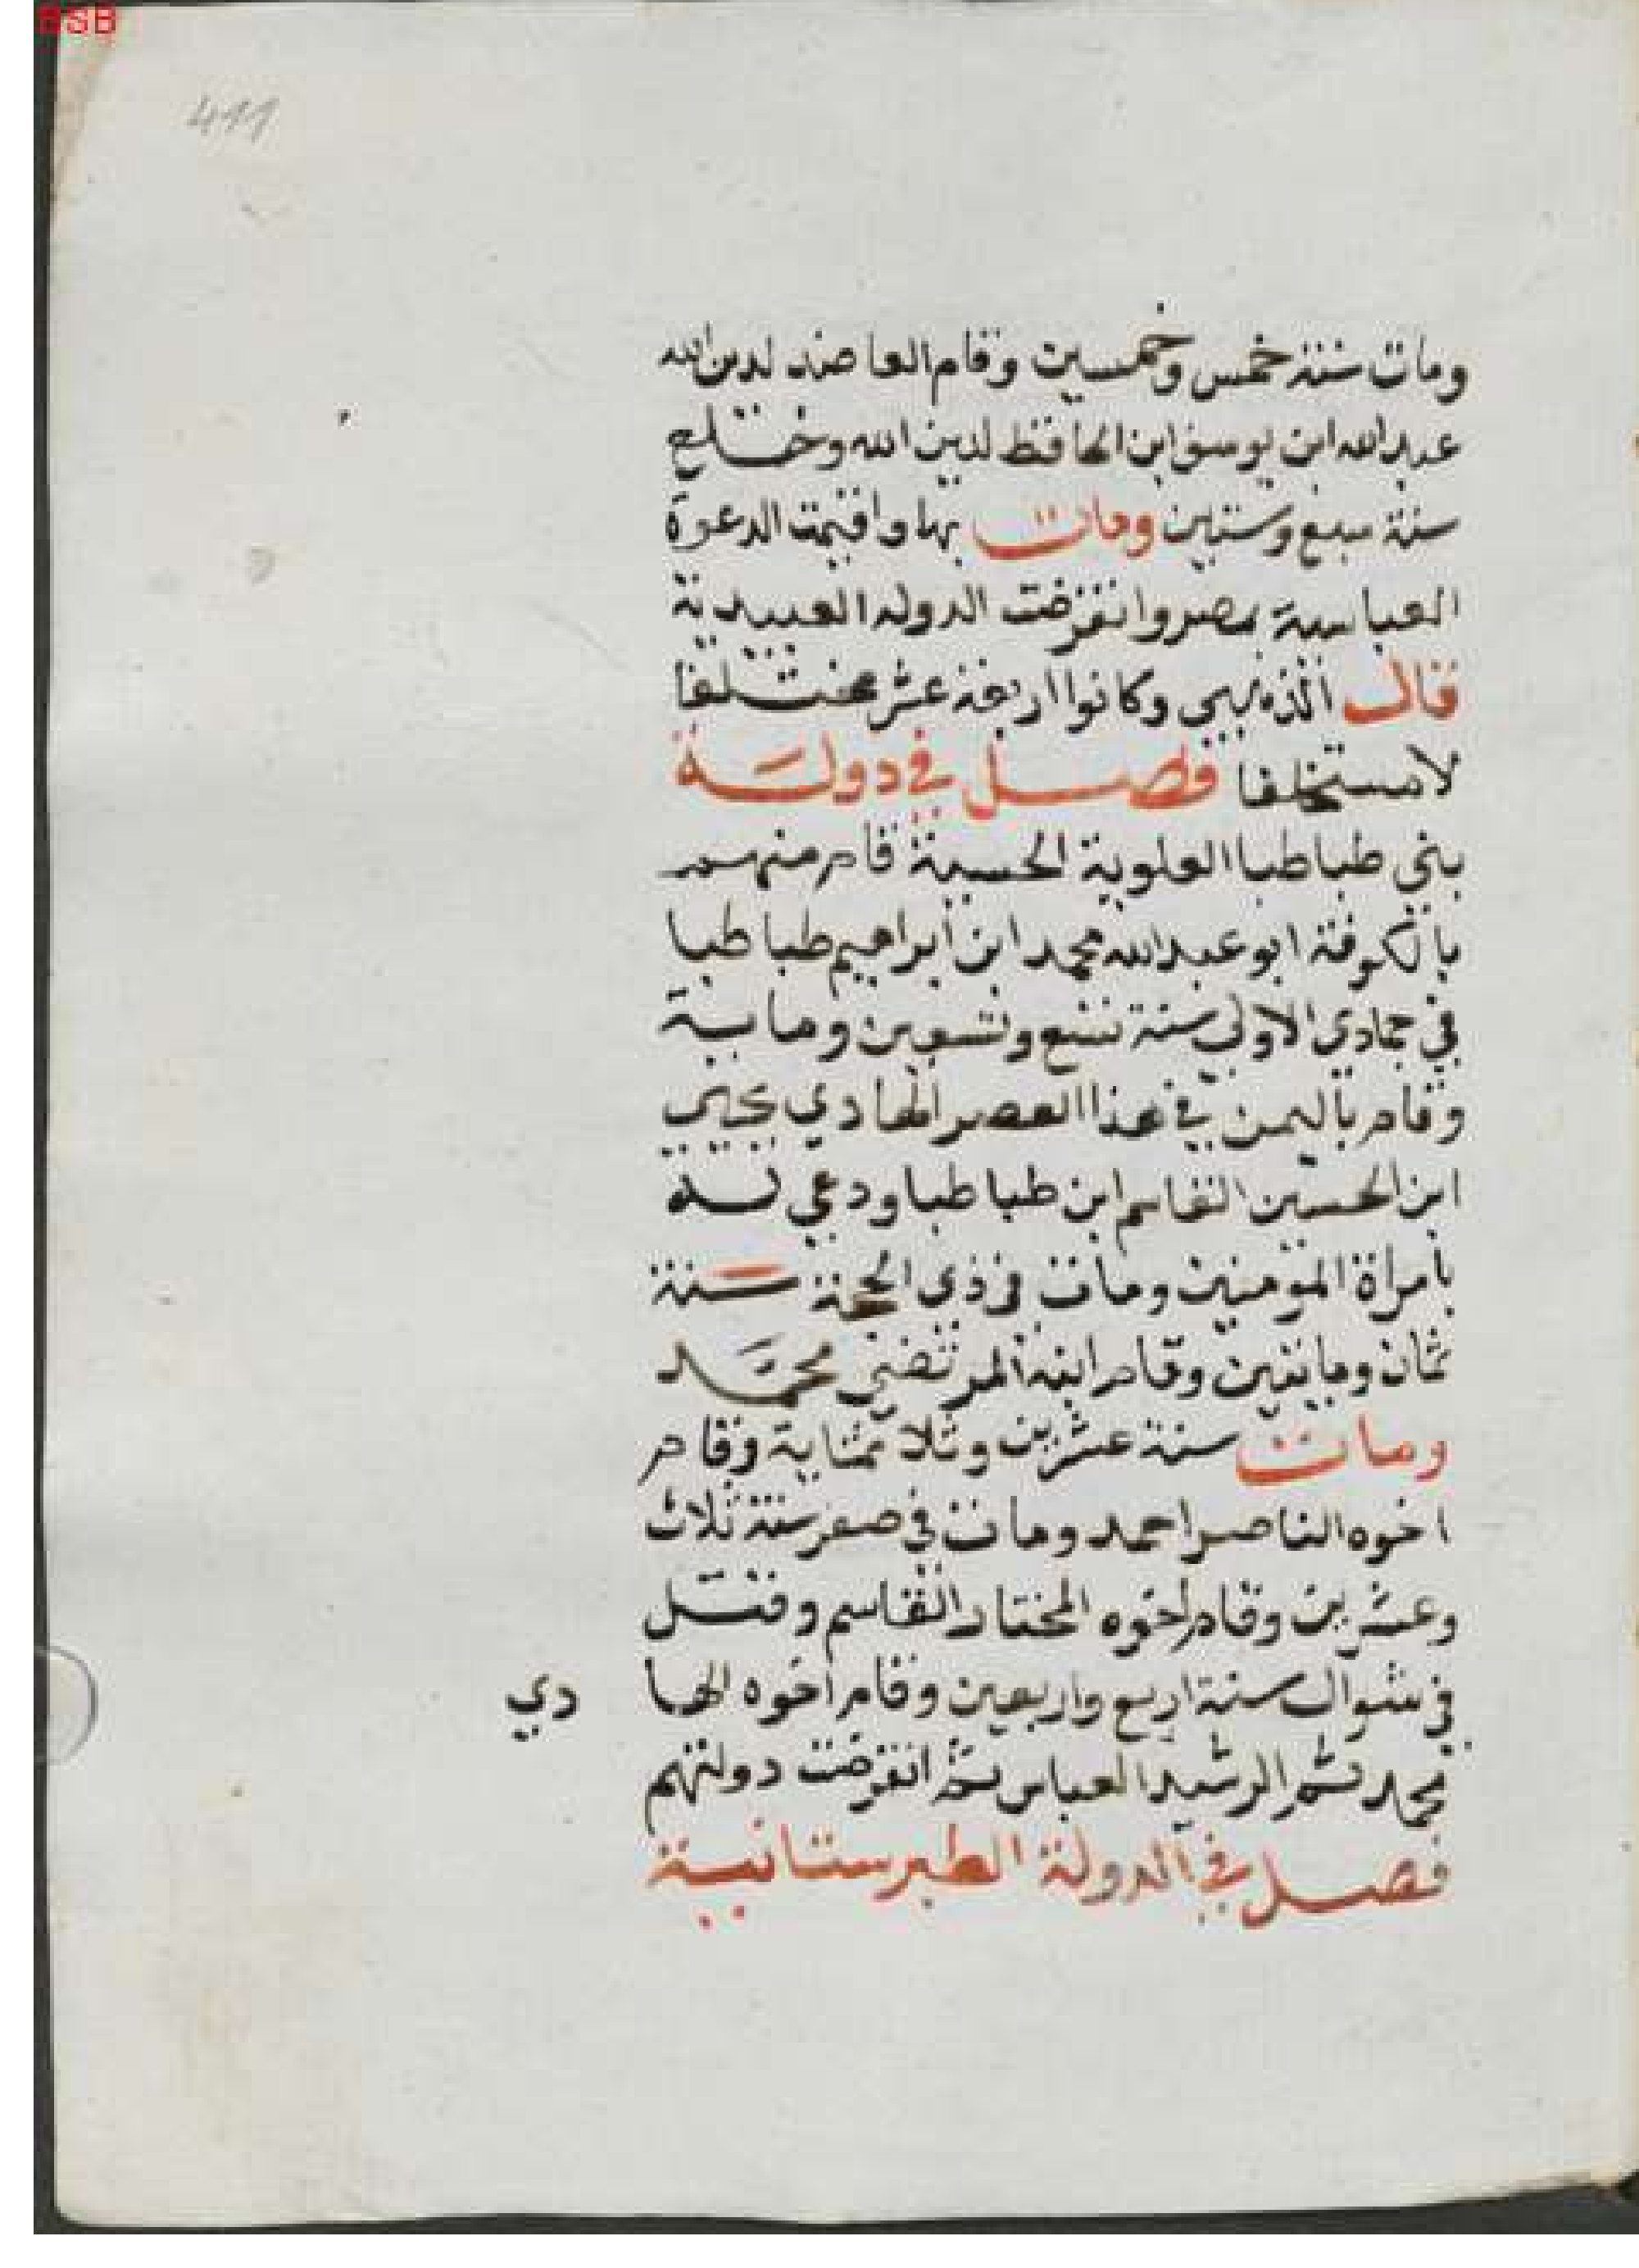 BSB
411
ومات سنة خمس وخمسين وقام العاضد لدين الله
عبد الله ابن يوسف ابن الحافظ لدين الله وخلع
سنة سبع وستين ومات بها واقيمت الدعوة
العباسية بمصر وانقرضت الدوله العبيدية
قال الذهبي وكانوا اربعة عشر متخلفا
لا مستخلفا فصل في دولة
بني طباطبا العلوية الحسينة قام منهم
بالكوفة ابو عبد الله محمد ابن ابراهيم طباطبا
في جمادى الاولى سنة تسع وتسعين وماية
وقام باليمن في هذا العصر الهادي يحيى
ابن الحسين القاسم ابن طباطبا ودعي له
بامراة المومنين ومات في ذي الحجة سنة
ثمان وماتين وقام ابنه المرتضى محمد
ومات سنة عشرين وثلاثماية وقام
اخوه الناصر احمد ومات في صفر سنة ثلاث
وعشرين وقام اخوه المختار القاسم وقتل
في شوال سنة اربع واربعين وقام اخوه الها دي
محمد ثم الرشيد العباس ثم انقرضت دولتهم
فصل في الدولة الطبرستانية